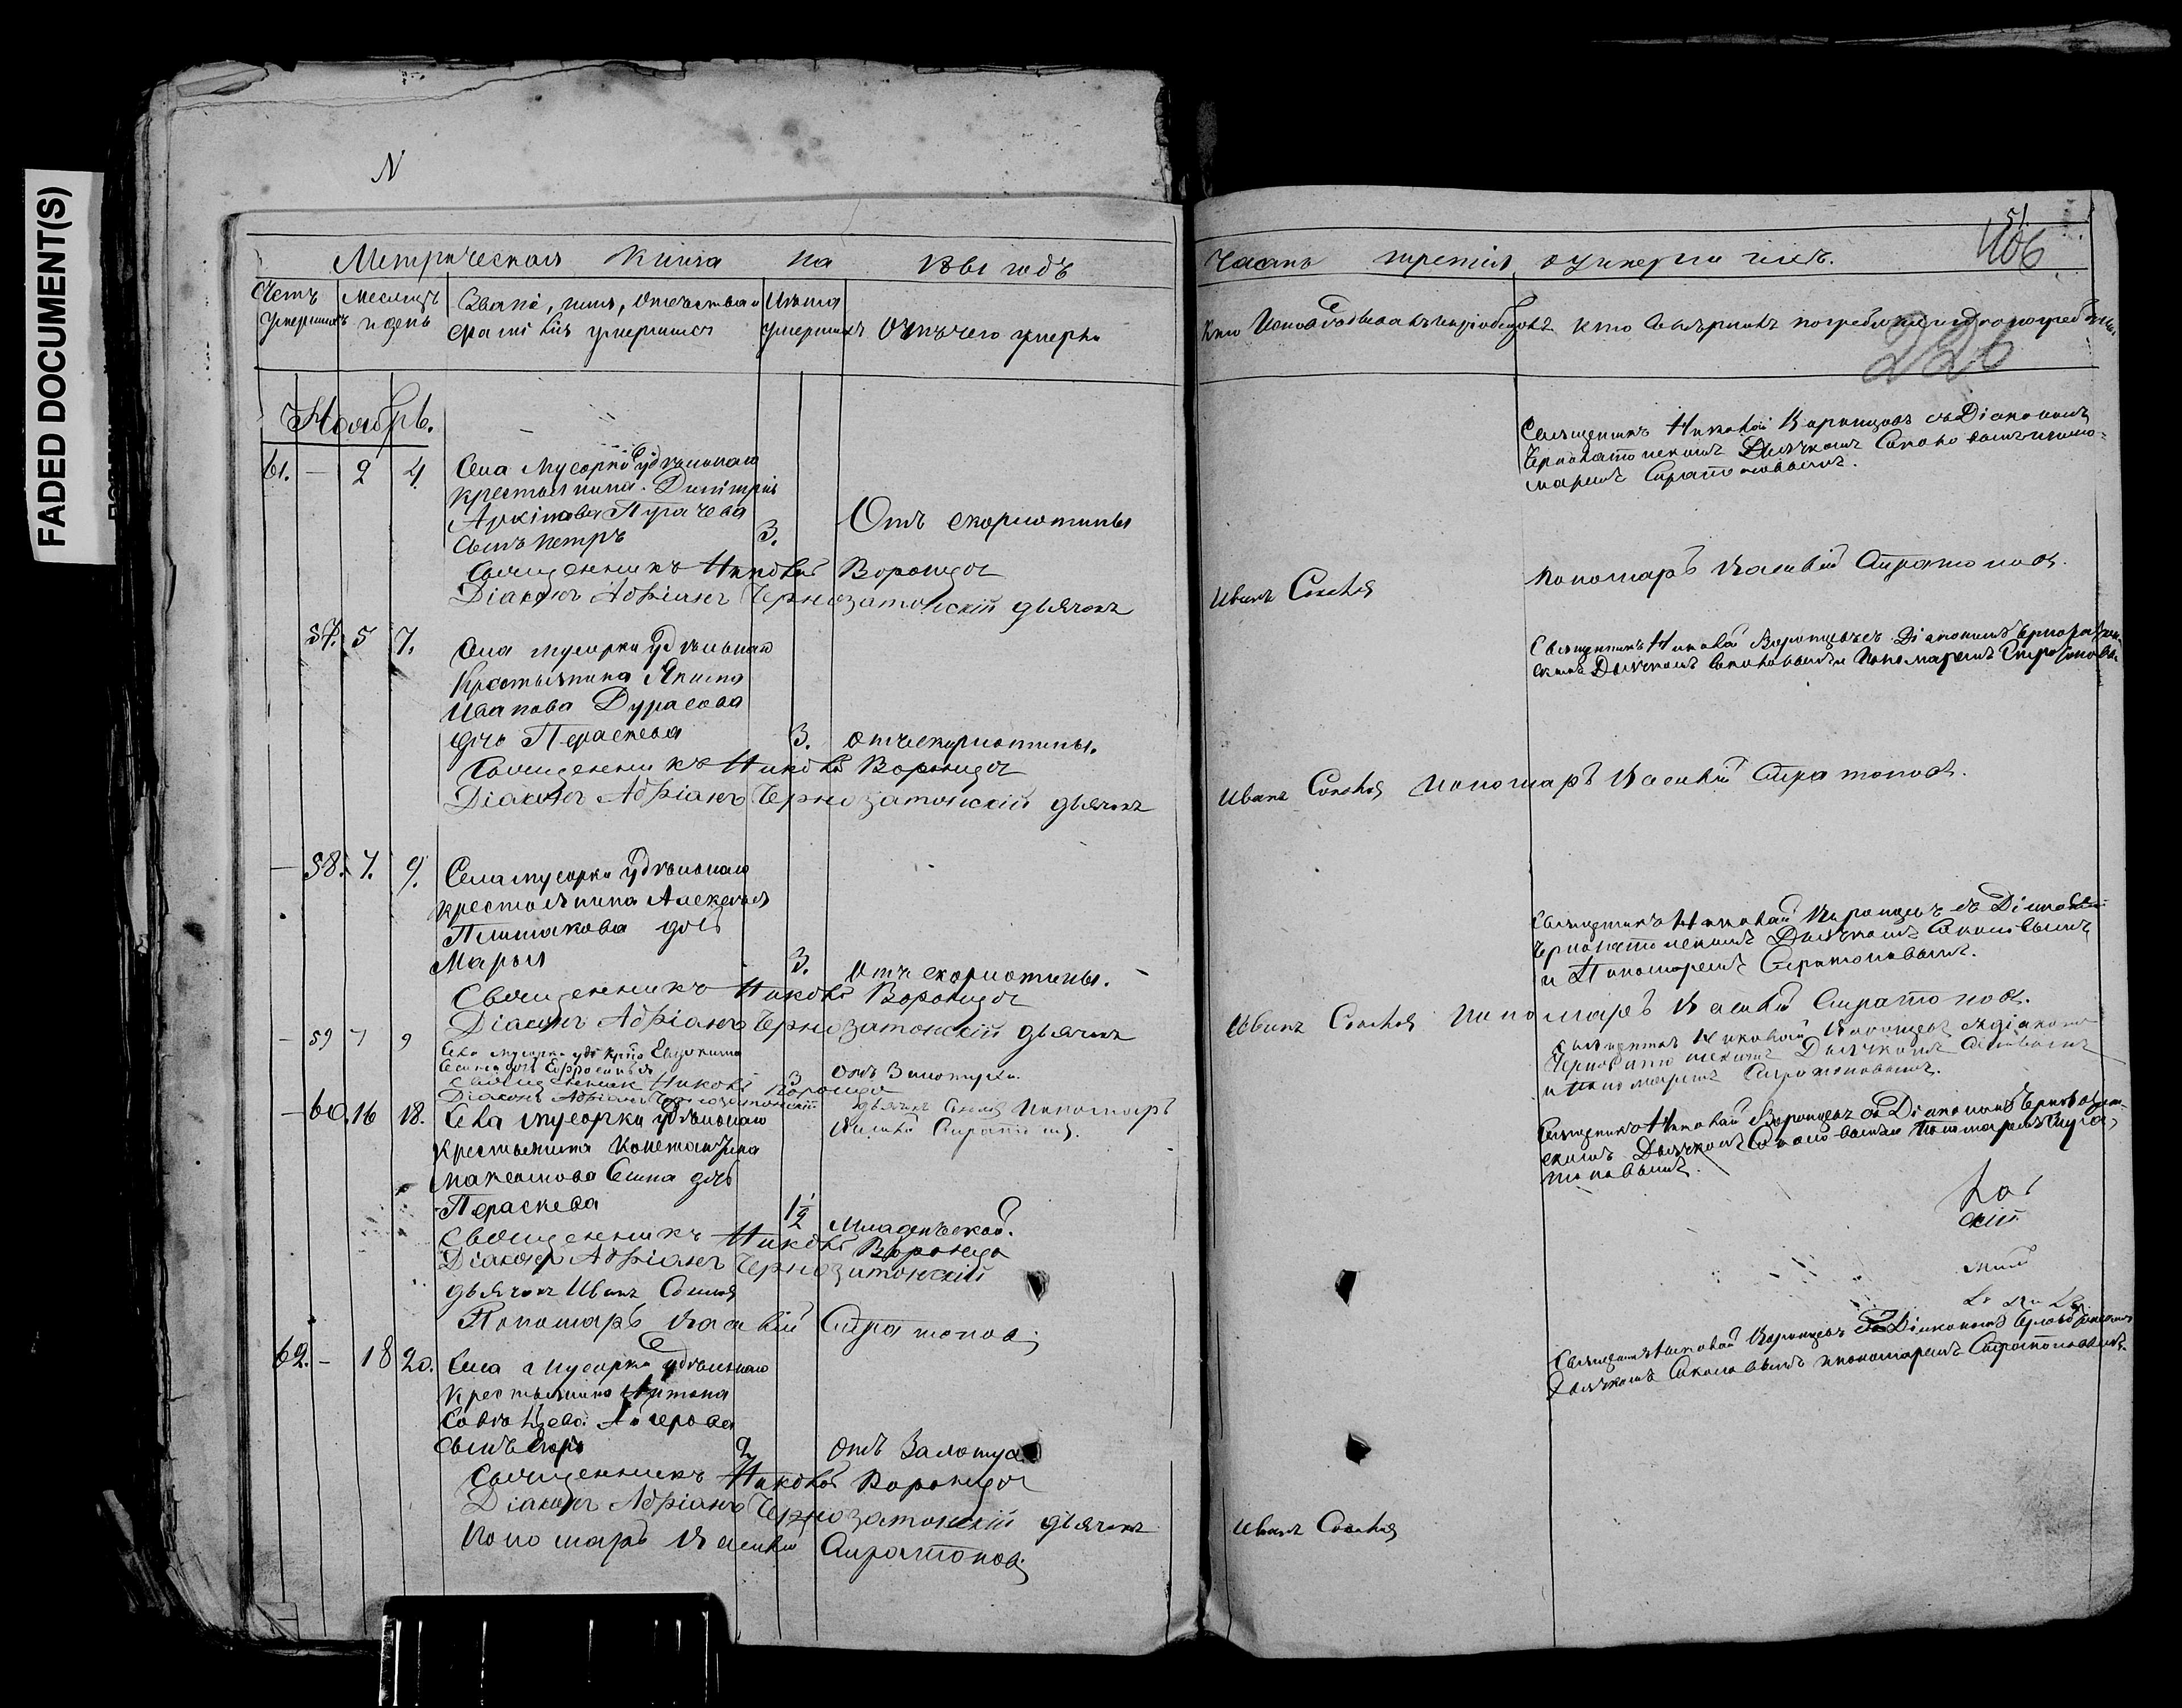 FADED DOCUMENT(S)
N
Метрическая книга на 1861 годъ
Счетъ умершихъ
Месяцъ и день
Званiе, имя, отечество и фамилiя умершихъ
Лѣта умершихъ
Отъ чего умеръ
Ноябрь.
61. — 2 4.
Села Мусорки удѣльнаго
крестьянина Димитрiя
Архипова Пугачева
сынъ Петръ
3.
Отъ скорлотины
Священникъ Николай Воронцовъ
Дiаконъ Адрiанъ Чернозатонскiй дьячокъ
57. 5 7.
Села Мусорки удѣльнаго
Крестьянина Якима
Иванова Дурасова
дочь Параскева
3.
отъ скорлотины.
Священникъ Николай Воронцовъ
Дiаконъ Адрiанъ Чернозатонскiй дьячокъ
— 58. 7. 9.
Села Мусорки удѣльнаго
крестьянина Алексея
Плотакова дочь
Марья
3.
Отъ скорлотины.
Священникъ Николай Воронцовъ
Дiаконъ Адрiанъ Чернозатонскiй дьячокъ
— 59 7 9
Села Мусорки удѣ кр Евдокима
дочь Ефросинья
3
Отъ Золотухи.
Священникъ Николай Воронцовъ
Дiаконъ Адрiанъ Чернозатонскiй
дьячокъ Соколов Пономарь
Василiй Стратоновъ
— 60. 16 18.
Села Мусорки удѣльнаго
крестьянина Константина
Максимова Есина дочь
Параскева
1 1/2
Младенческой.
Священникъ Николай Воронцовъ
Дiаконъ Адрiанъ Чернозатонскiй
дьячокъ Иванъ Соколов
Пономарь Василiй Стратоновъ
62. — 18 20.
Села Мусорки удѣльнаго
крестьянина Антона
сынъ Егоръ
2
отъ Золотухи
Священникъ Николай Воронцовъ
Дiаконъ Адрiанъ Чернозатонскiй дьячокъ
Пономарь Василiй Стратоновъ
51
406
Часть третiя о умершихъ.
Кто исповѣдывалъ и прiобщалъ
Кто совершалъ погребенiе и гдѣ погребены
226
Священникъ Николай Воронцовъ съ Дiакономъ
Чернозатонскимъ Дьячкомъ Соколовымъ и пономаремъ Стратоновымъ.
Иванъ Соколов
Пономарь Василiй Стратоновъ.
Священникъ Николай Воронцовъ съ Дiакономъ Чернозатонскимъ Дьячкомъ Соколовымъ и Пономаремъ Стратоновым
Иванъ Соколов Пономарь Василiй Стратоновъ.
Священникъ Николай Воронцовъ съ Дiакономъ
Чернозатонскимъ Дьячкомъ Соколовымъ
и Пономаремъ Стратоновымъ.
Иванъ Соколов Пономарь Василiй Стратоновъ.
Священникъ Николай Воронцовъ съ дiакономъ
Чернозатонскимъ Дьячкомъ Соколовымъ
и пономаремъ Стратоновымъ.
Священникъ Николай Воронцовъ съ Дiакономъ Чернозатонскимъ Дьячкомъ Соколовымъ и Пономаремъ Стратоновымъ.
Священникъ Николай Воронцовъ съ Дiакономъ Чернозатонскимъ
Дьячкомъ Соколовымъ и пономаремъ Стратоновымъ.
Иванъ Соколов